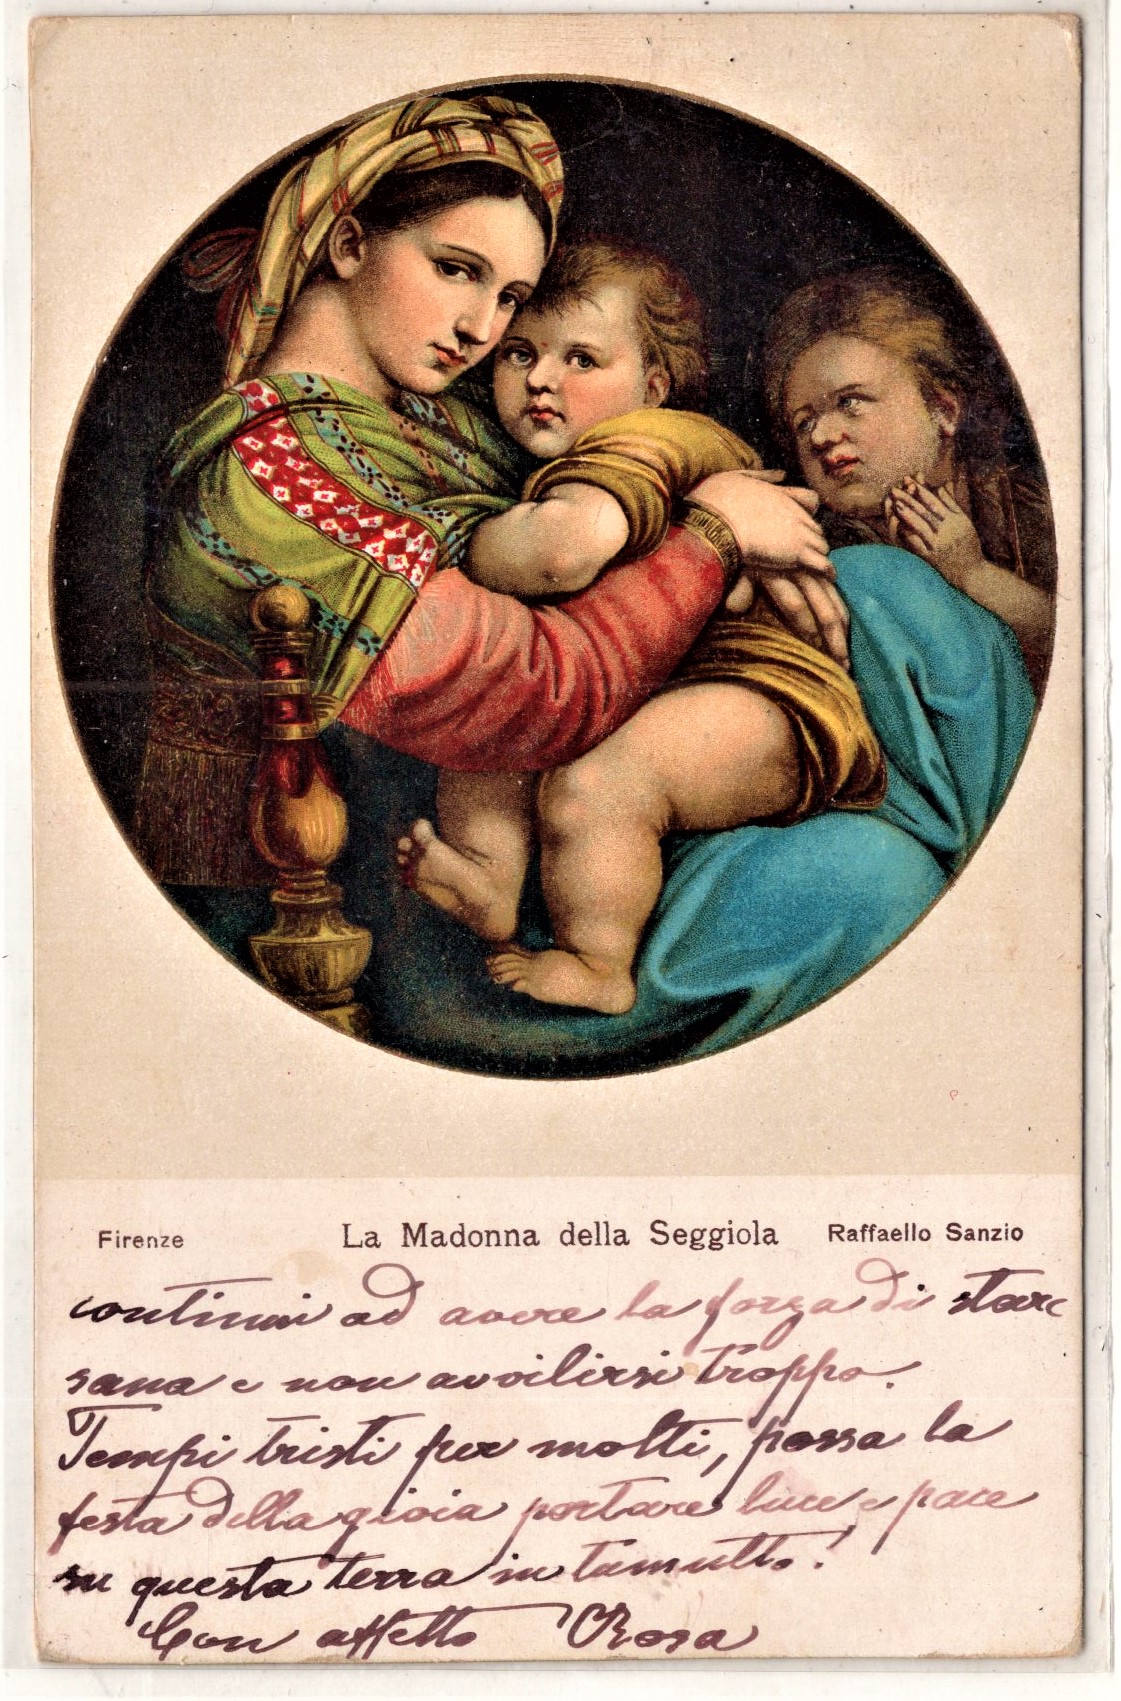 Firenze La Madonna della Seggiola Raffaello Sanzio
continui ad avere la forza di stare
sana e non avvilirsi troppo.
Tempi tristi per molti, possa la
festa della gioia portare luce e pace
su questa terra in tumulto!
Con affetto Rosa